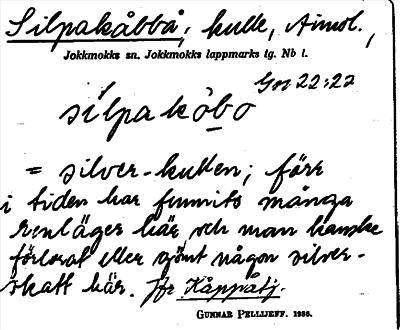 Silpakåbbå, kulle, Aimol.,
Jokkmokks sn. Jokkmokks lappmarks tg. Nb l.
Gm 22:22
silpakobo
= silver-kullen; förr
i tiden har funnits många
renläger här och man kanske
förlorat eller gömt någon silver-
skatt här. Jfr Kåppåtj.
GUNNAR PELLIJEFF. 1936.